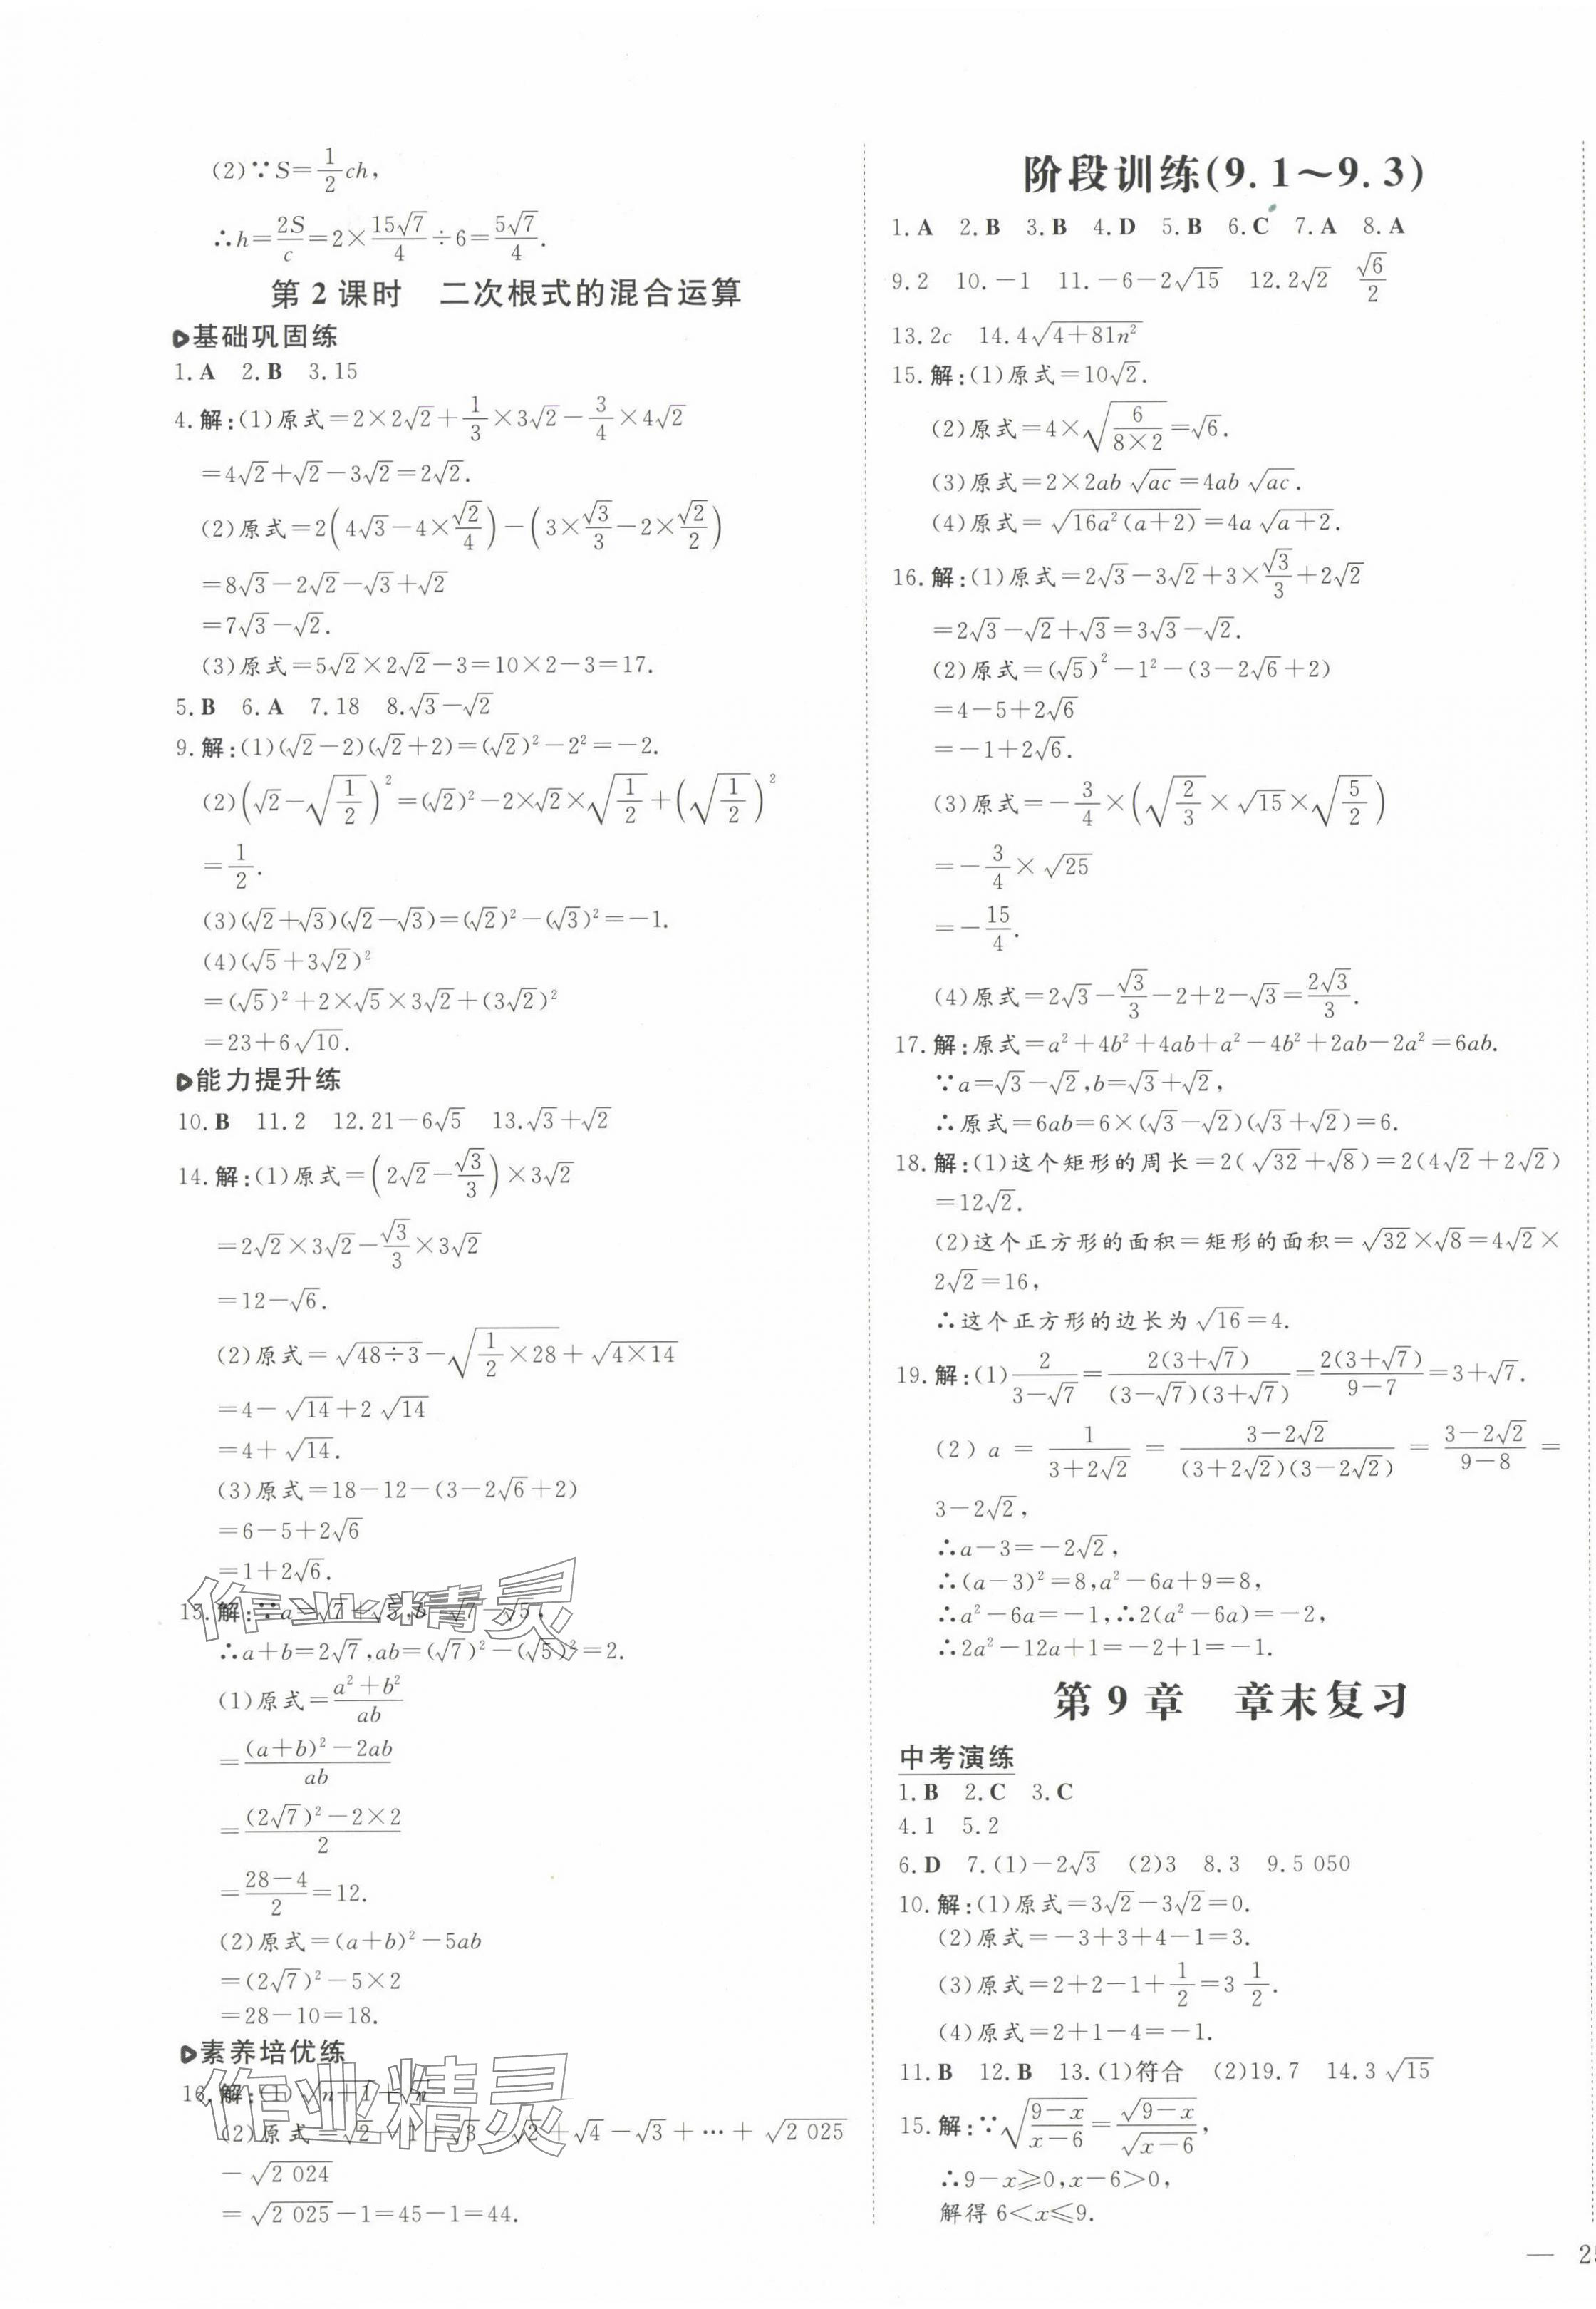 (2)∵S=1/2 ch,
∴h=2S/c=2×15√7/4÷6=5√7/4.
第2课时　二次根式的混合运算
基础巩固练
1.A　2.B　3.15
4.解:(1)原式=2×2√2+1/3×3√2-3/4×4√2
=4√2+√2-3√2=2√2.
(2)原式=2(4√3-4×√2/4)-(3×√3/3-2×√2/2)
=8√3-2√2-√3+√2
=7√3-√2.
(3)原式=5√2×2√2-3=10×2-3=17.
5.B　6.A　7.18　8.√3-√2
9.解:(1)(√2-2)(√2+2)=(√2)²-2²=-2.
(2)(√2-√(1/2))²=(√2)²-2×√2×√(1/2)+(√(1/2))²
=1/2.
(3)(√2+√3)(√2-√3)=(√2)²-(√3)²=-1.
(4)(√5+3√2)²
=(√5)²+2×√5×3√2+(3√2)²
=23+6√10.
能力提升练
10.B　11.2　12.21-6√5　13.√3+√2
14.解:(1)原式=(2√2-√3/3)×3√2
=2√2×3√2-√3/3×3√2
=12-√6.
(2)原式=√(48÷3)-√(1/2×28)+√(4×14)
=4-√14+2√14
=4+√14.
(3)原式=18-12-(3-2√6+2)
=6-5+2√6
=1+2√6.
15.解:∵a=√7+√5,b=√7-√5,
∴a+b=2√7,ab=(√7)²-(√5)²=2.
(1)原式=(a²+b²)/ab
=((a+b)²-2ab)/ab
=((2√7)²-2×2)/2
=(28-4)/2=12.
(2)原式=(a+b)²-5ab
=(2√7)²-5×2
=28-10=18.
素养培优练
16.解:(1)√(n+1)-√n
(2)原式=√2-1+√3-√2+√4-√3+…+√2 025
-√2 024
=√2 025-1=45-1=44.
作业精灵
作业精灵
阶段训练(9.1～9.3)
1.A　2.B　3.B　4.D　5.B　6.C　7.A　8.A
9.2　10.-1　11.-6-2√15　12.2√2　√6/2
13.2c　14.4√(4+81n²)
15.解:(1)原式=10√2.
(2)原式=4×√(6/(8×2))=√6.
(3)原式=2×2ab√(ac)=4ab√(ac).
(4)原式=√(16a²(a+2))=4a√(a+2).
16.解:(1)原式=2√3-3√2+3×√3/3+2√2
=2√3-√2+√3=3√3-√2.
(2)原式=(√5)²-1²-(3-2√6+2)
=4-5+2√6
=-1+2√6.
(3)原式=-3/4×(√(2/3)×√15×√(5/2))
=-3/4×√25
=-15/4.
(4)原式=2√3-√3/3-2+2-√3=2√3/3.
17.解:原式=a²+4b²+4ab+a²-4b²+2ab-2a²=6ab.
∵a=√3-√2,b=√3+√2,
∴原式=6ab=6×(√3-√2)(√3+√2)=6.
18.解:(1)这个矩形的周长=2(√32+√8)=2(4√2+2√2)
=12√2.
(2)这个正方形的面积=矩形的面积=√32×√8=4√2×
2√2=16,
∴这个正方形的边长为√16=4.
19.解:(1)2/(3-√7)=2(3+√7)/((3-√7)(3+√7))=2(3+√7)/(9-7)=3+√7.
(2)a=1/(3+2√2)=(3-2√2)/((3+2√2)(3-2√2))=(3-2√2)/(9-8)=
3-2√2,
∴a-3=-2√2,
∴(a-3)²=8,a²-6a+9=8,
∴a²-6a=-1,∴2(a²-6a)=-2,
∴2a²-12a+1=-2+1=-1.
第9章　章末复习
中考演练
1.B　2.C　3.C
4.1　5.2
6.D　7.(1)-2√3　(2)3　8.3　9.5 050
10.解:(1)原式=3√2-3√2=0.
(2)原式=-3+3+4-1=3.
(3)原式=2+2-1+1/2=3 1/2.
(4)原式=2+1-4=-1.
11.B　12.B　13.(1)符合　(2)19.7　14.3√15
15.解:∵√((9-x)/(x-6))=√(9-x)/√(x-6),
∴9-x≥0,x-6>0,
解得6<x≤9.